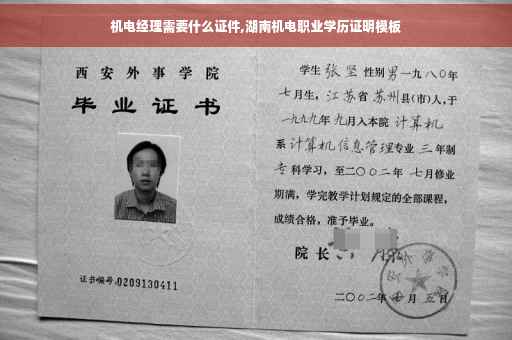 机电经理需要什么证件,湖南机电职业学历证明模板
西安外事学院
毕业证书
证书编号:0209130411
学生张坚性别男一九八〇年
七月生，江苏省苏州县(市)人,于
一九九九年九月入本院计算机
系计算机信息管理专业三年制
专科学习，至二〇〇二年七月修业
期满，学完教学计划规定的全部课程，
成绩合格，准予毕业。
院长
二〇〇二年 月五日